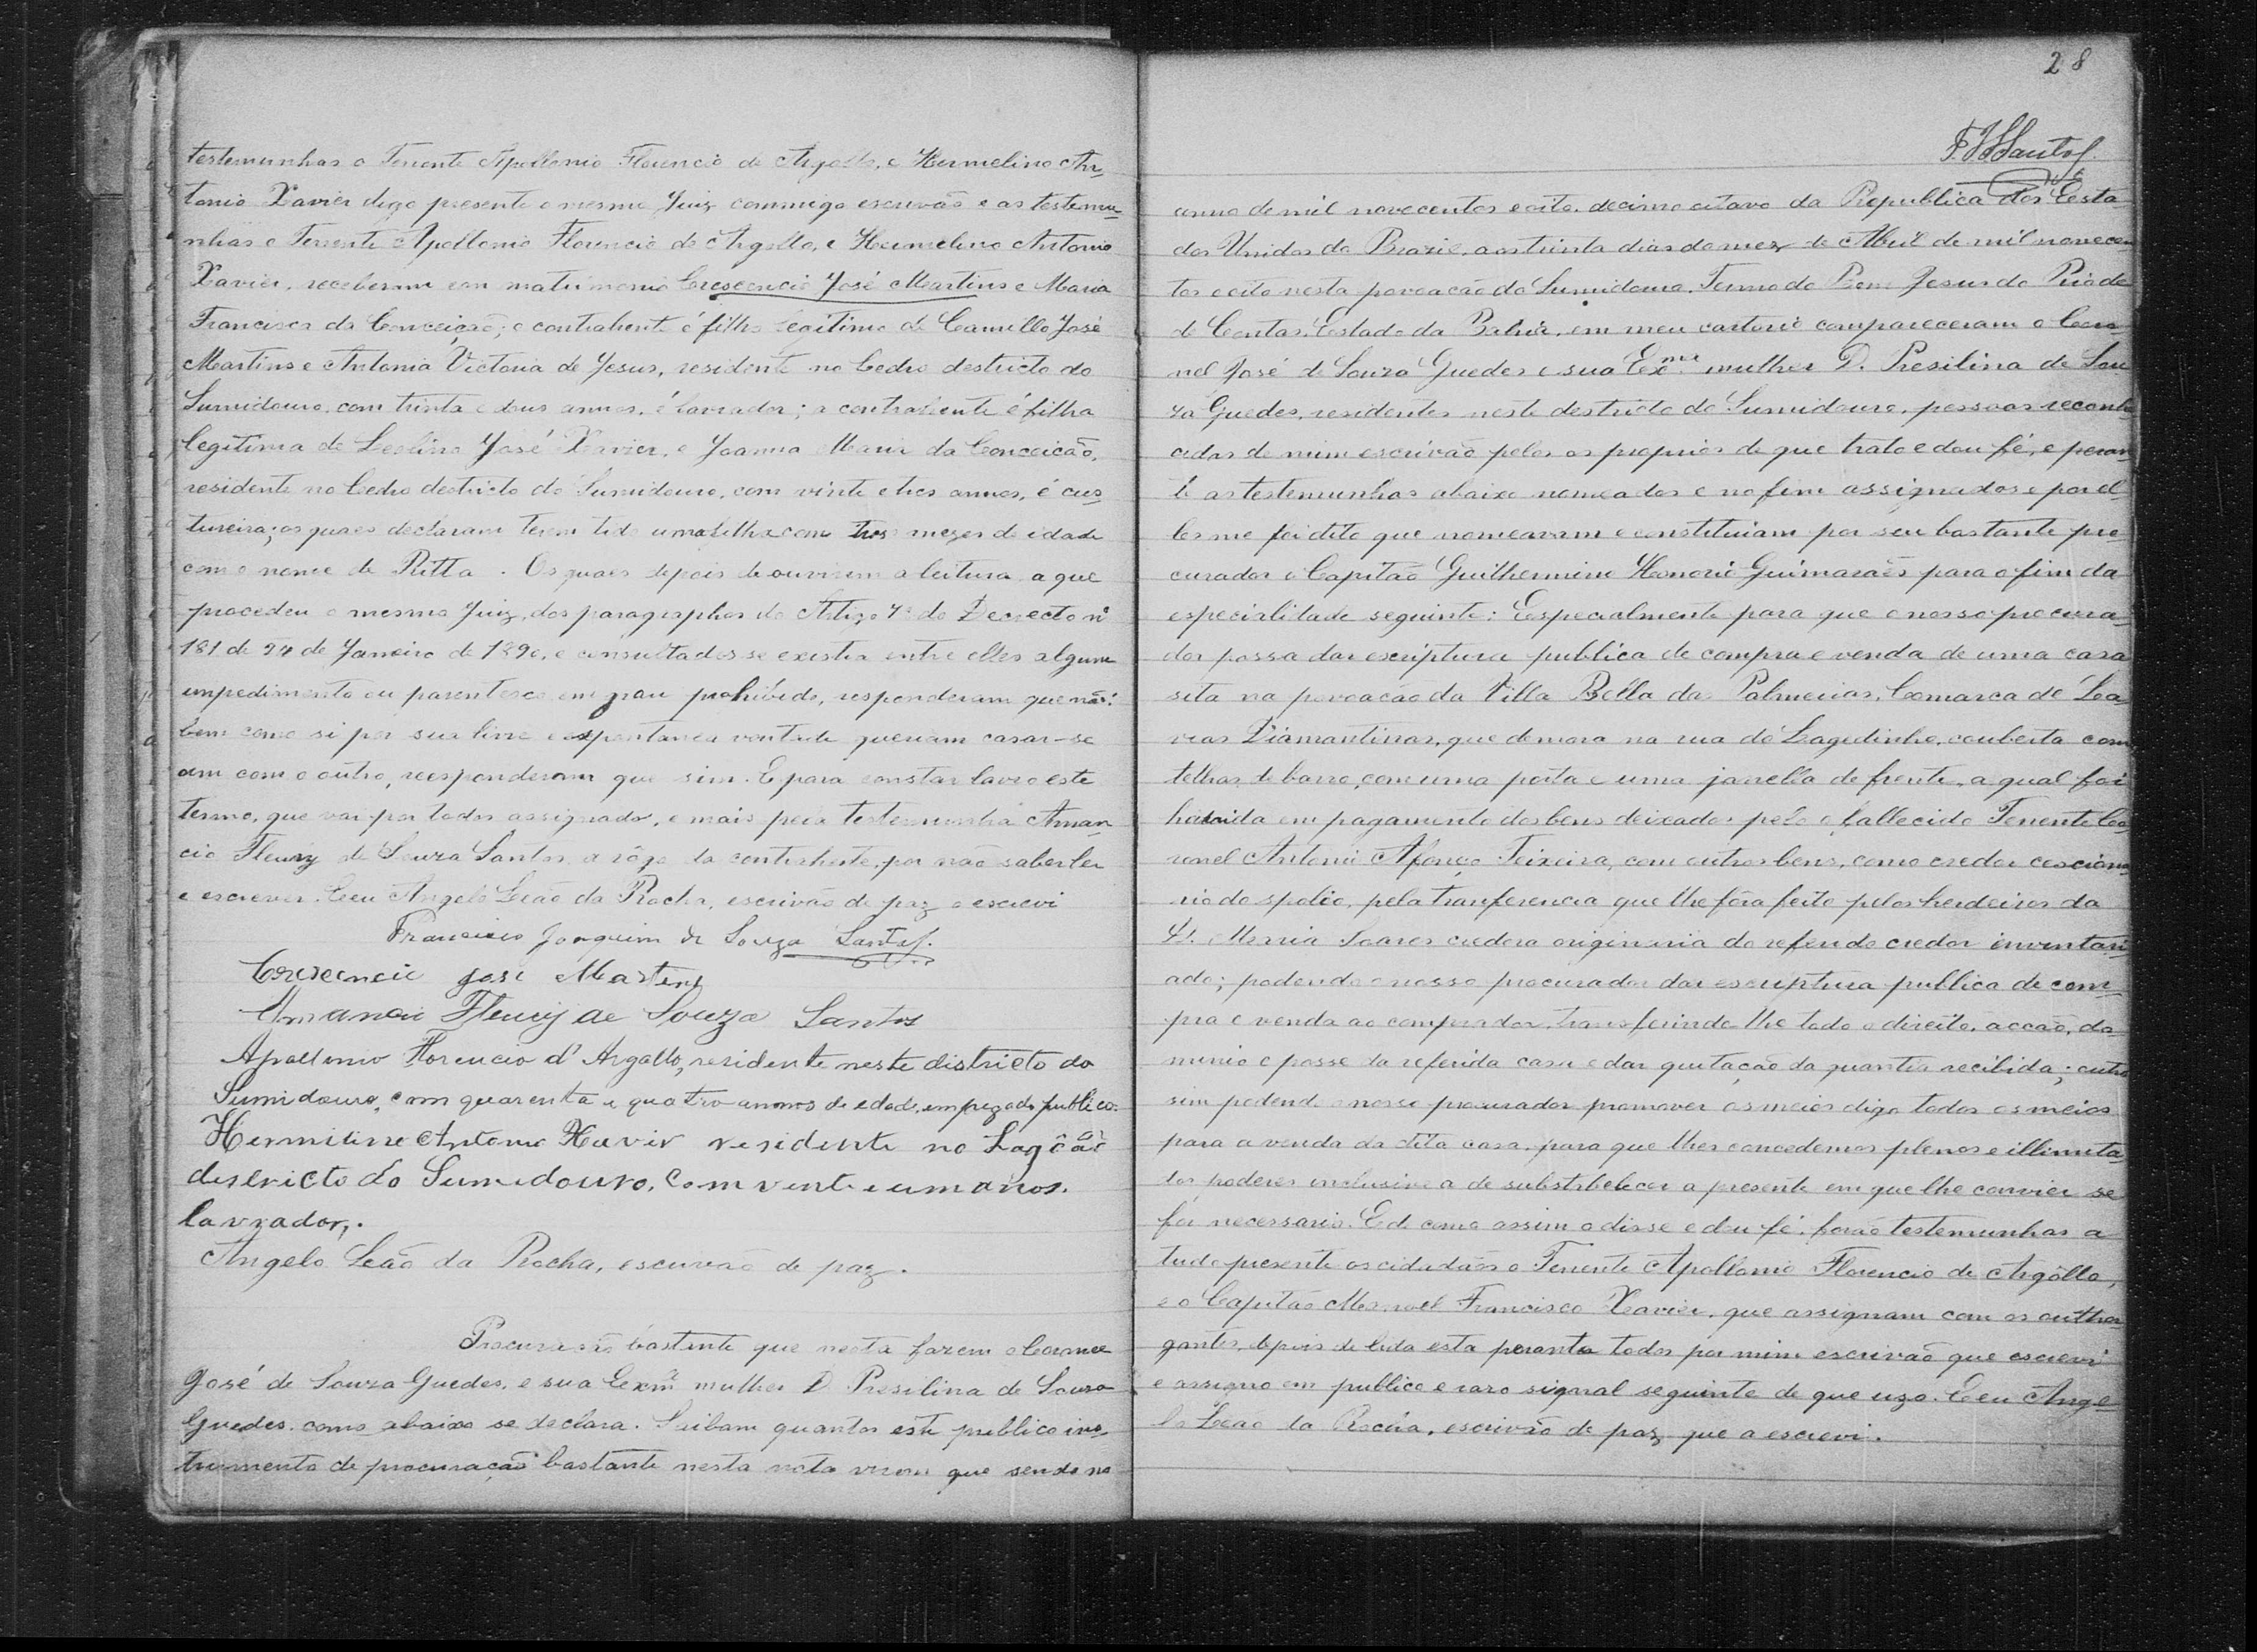 testemunhas o Tenente Apollonio Florencio de Argollo, e Hermelino An-
tonio Xavier digo presente o mesmo Juiz commigo escrivão e as testemu-
nhas o Tenente Apollonio Florencio de Argollo, e Hermelino Antonio
Xavier, receberam em matrimonio Crescencio José Martins e Maria
Francisca da Conceição; o contrahente é filho legitimo de Camillo José
Martins e Antonia Victoria de Jesus, residente no Cedro destricto do
Sumidouro, com trinta e dous annos, é lavrador; a contrahente é filha
legitima de Leolino José Xavier, e Joanna Maria da Conceição,
residente no Cedro destricto do Sumidouro, com vinte e tres annos, é cus
tureira; os quaes declaram terem tido uma filha com tres mezes de idade
com o nome de Ritta. Os quaes depois de ouvirem a leitura a que
procedeu o mesmo Juiz, dos paragraphos do Artigo 7º do Decrecto nº
181 de 24 de Janeiro de 1890, e consultados se existia entre elles algum
impedimento ou parentesco em grau prohibido, responderam que não:
bem como si por sua livre e espontanea vontade queriam casar-se
um com o outro, reesponderam que sim. E para constar lavro este
termo, que vai por todos assignado, e mais pela testemunha Aman-
cio Fleury de Souza Santos, a rôgo da contrahente, por não saber ler
e escrever. Eeu Angelo Leão da Rocha, escrivão de paz o escrevi
Francisco Joaquim de Souza Santos.
Crescencio José Martins
Amancio Fleury de Souza Santos
Apollonio Florencio d'Argollo, residente neste districto do
Sumidouro, com quarenta e quatro annos de edade, empregado publico.
Hermilino Antonio Xavir residente no Lagôão
destricto do Sumedouro, com vente e um anos.
lavrador,.
Angelo Leão da Rocha, escrivão de paz.
Procuração bastante que nesta fazem o Coronel
José de Souza Guedes, e sua Exmª mulher D. Presilina de Souza
Guedes, como abaixo se declara. Saibam quantos este publico ins-
trumento de procuração bastante nesta nota virem que sendo no
28
F. J. S. Santos.
anno de mil novecentos e oito, decimo oitavo da Republica dos Esta-
dos Unidos do Brazil, aos trinta dias do mez de Abril de mil novecen-
tos e oito nesta povoação do Sumidouro, Termo do Bom Jesus do Rio de
de Contas, Estado da Bahia, em meu cartorio compareceram o Coro-
nel José de Souza Guedes e sua Exmª mulher D. Presilina de Sou-
za Guedes, residentes neste destricto do Sumidouro, pessoas reconhe-
cidas de mim escrivão pelos os proprios de que trato e dou fé, e peran-
te as testemunhas abaixo nomeados e no fim assignados e por el-
les me foi dito que nomeavam e constituiam por seu bastante pro-
curador o Capitão Guilhermino Honorio Guimarães para o fim da
especialidade seguinte: Eespecialmente para que o nosso procura-
dor possa dar escriptura publica de compra e venda de uma casa
sita na povoação da Villa Bella das Palmeiras, Comarca de Lea-
vras Diamantinas, que demora na rua do Lagedinho, couberta com
telhas de barro, com uma porta e uma janella de frente, a qual foi
havida em pagamento dos bens deixados pelo o fallecido Tenente Co-
ronel Antonio Afonço Teixeira, com outros bens, como credor cesciona-
rio do spolio, pela tranferencia que lhe fôra feito pelos herdeiros da
D. Maria Soares credora originaria do referido credor inventari-
ado; podendo o nosso procurador dar escriptura publica de com-
pra e venda ao comprador, transferindo-lhe todo o direito, accão, do-
minio e posse da referida casa e dar quitação da quantia recibida; outro
sim podendo o nosso procurador promover os meios digo todos os meios
para a venda da dita casa, para que lhes concedemos plenos e illimita-
dos poderes inclusive a de substabelecer a presente em que lhe convier se
for necessario. E d como assim o disse e dou fé, forão testemunhas a
tudo presente os cidadãos o Tenente Apollonio Florencio de Argôllo,
e o Capitão Manoel Francisco Xavier, que assignam com os outhor-
gantes, depois de lida esta peranta todos por mim escrivão que escrevi
e assigno em publico e raso signal seguinte de que uzo. Eeu Ange-
lo Leão da Rocha, escrivão de paz que a escrevi.